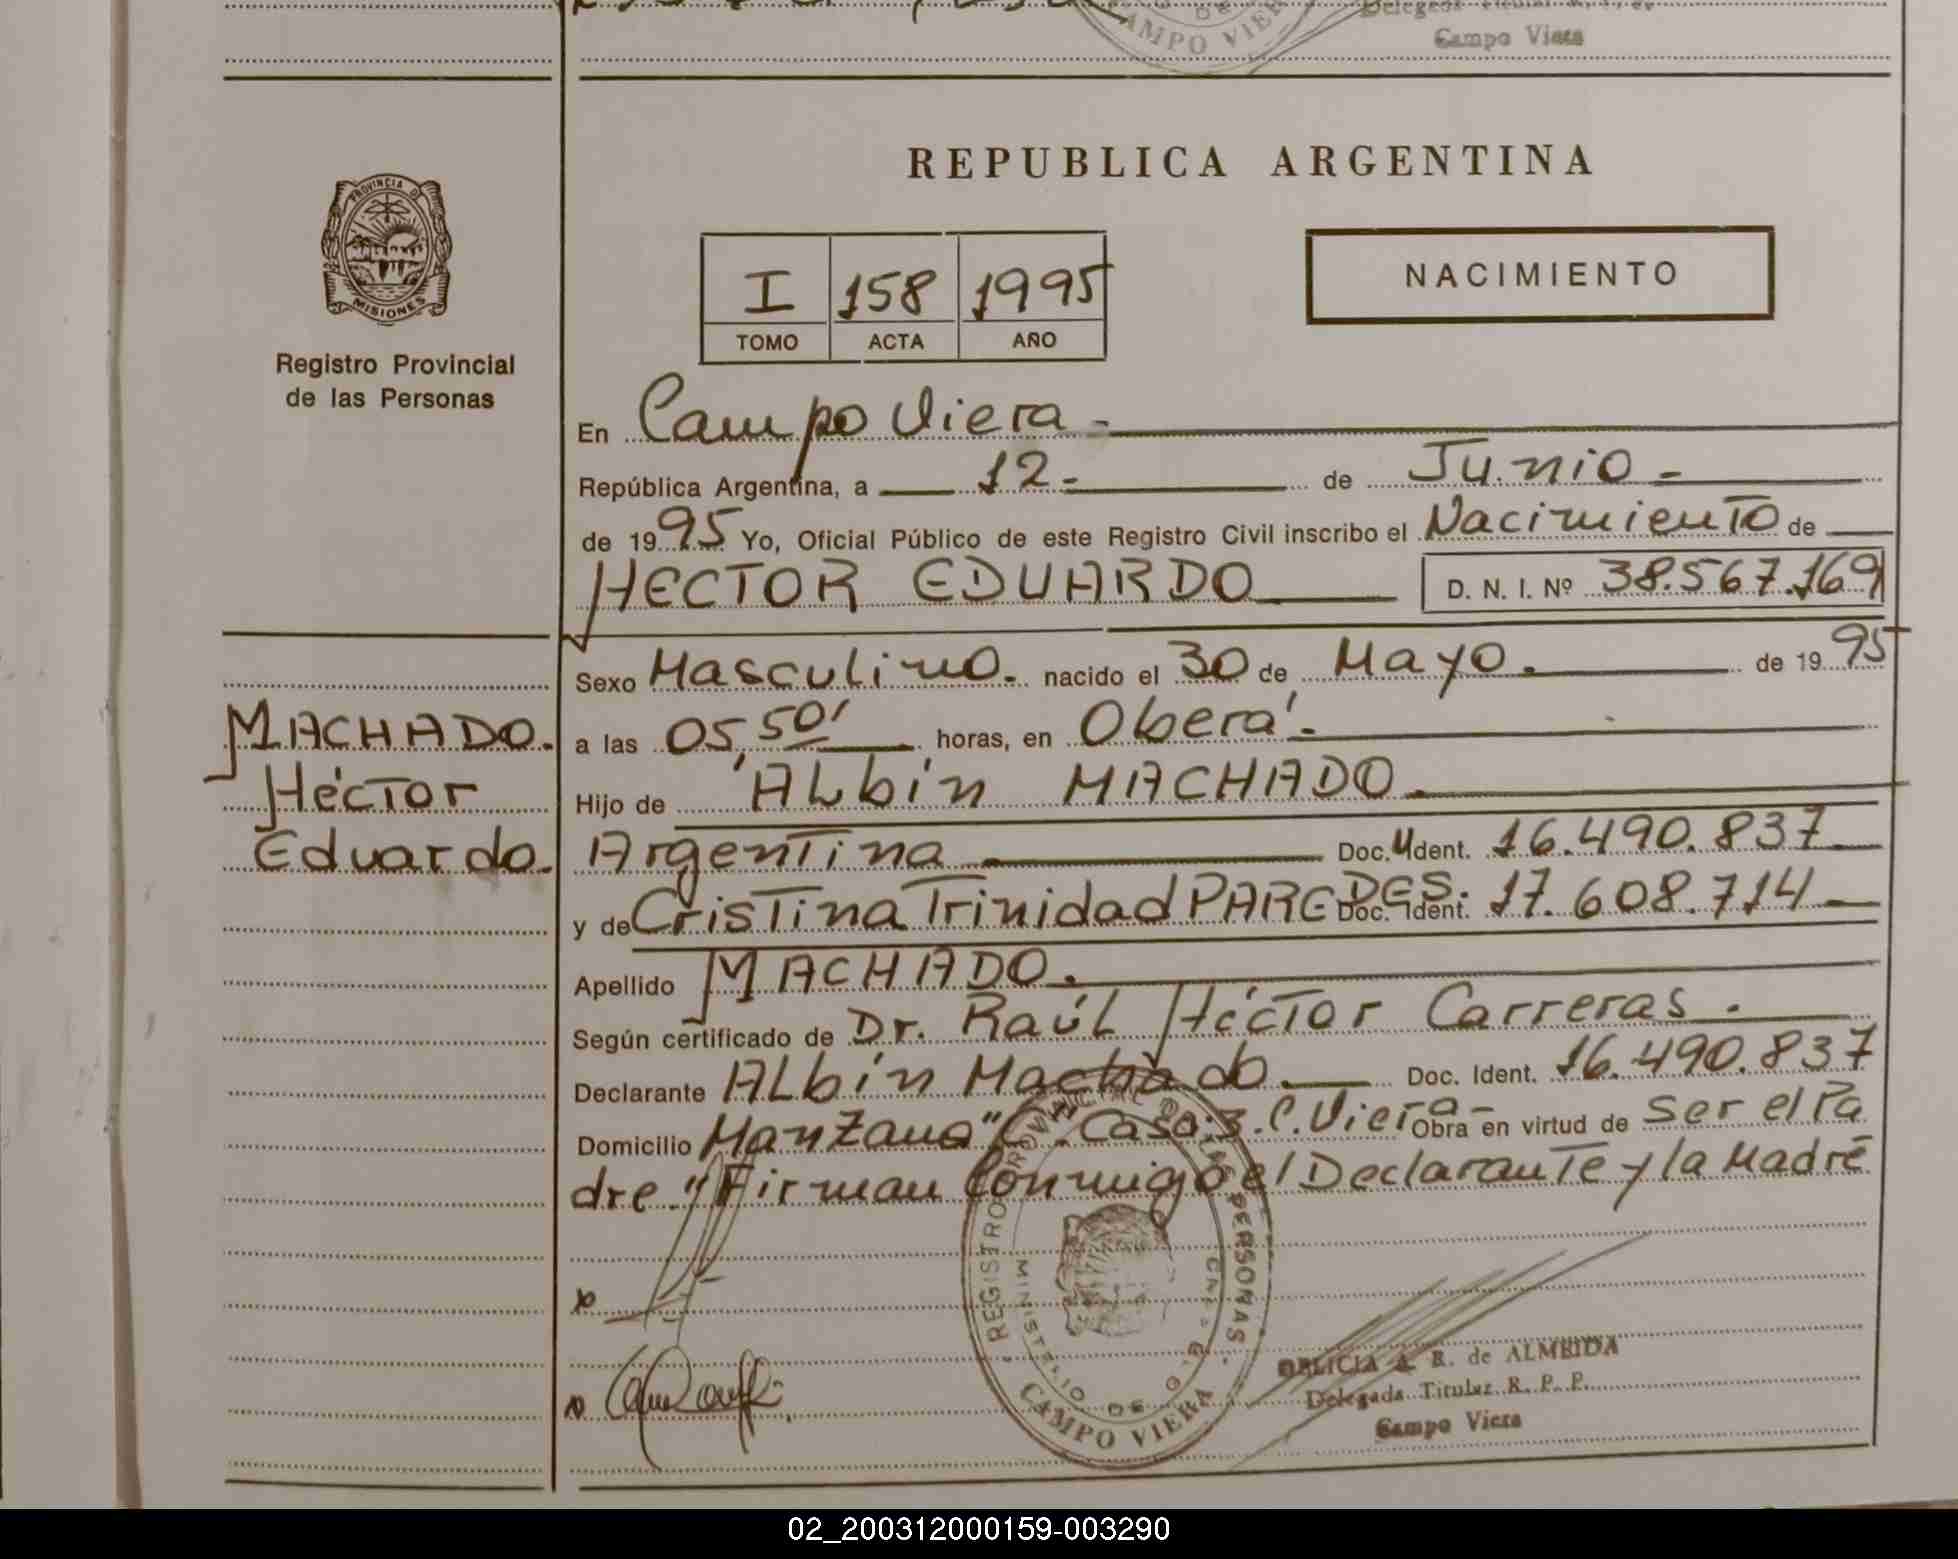 CAMPO VIERA
Delegada Titular R. P. P.
Campo Viera
REPUBLICA ARGENTINA
PROVINCIA DE MISIONES
Registro Provincial
de las Personas
I 158 1995
TOMO ACTA AÑO
NACIMIENTO
En Campo Viera -
República Argentina, a 12 - de Junio -
de 1995 Yo, Oficial Público de este Registro Civil inscribo el Nacimiento de
HECTOR EDUARDO D. N. I. Nº 38.567.169
MACHADO.
Héctor
Eduardo.
Sexo Masculino. nacido el 30 de Mayo. de 1995
a las 05,50' horas, en Oberá.
Hijo de ALbín MACHADO.
Argentina Doc. Ident. 16.490.837
y de Cristina Trinidad PAREDES. Doc. Ident. 17.608.714
Apellido MACHADO.
Según certificado de Dr. RaúL Héctor Carreras.
Declarante ALbín Machado. Doc. Ident. 16.490.837
Domicilio Manzana "C". Casa: 3. C. Viera - Obra en virtud de ser el Pa
dre." Firman Conmigo el Declarante y la Madre
REGISTRO PROVINCIAL DE LAS PERSONAS
MINISTERIO DE G.
CAMPO VIERA
DELICIA A. R. de ALMEIDA
Delegada Titular R. P. P.
Campo Viera
02_200312000159-003290